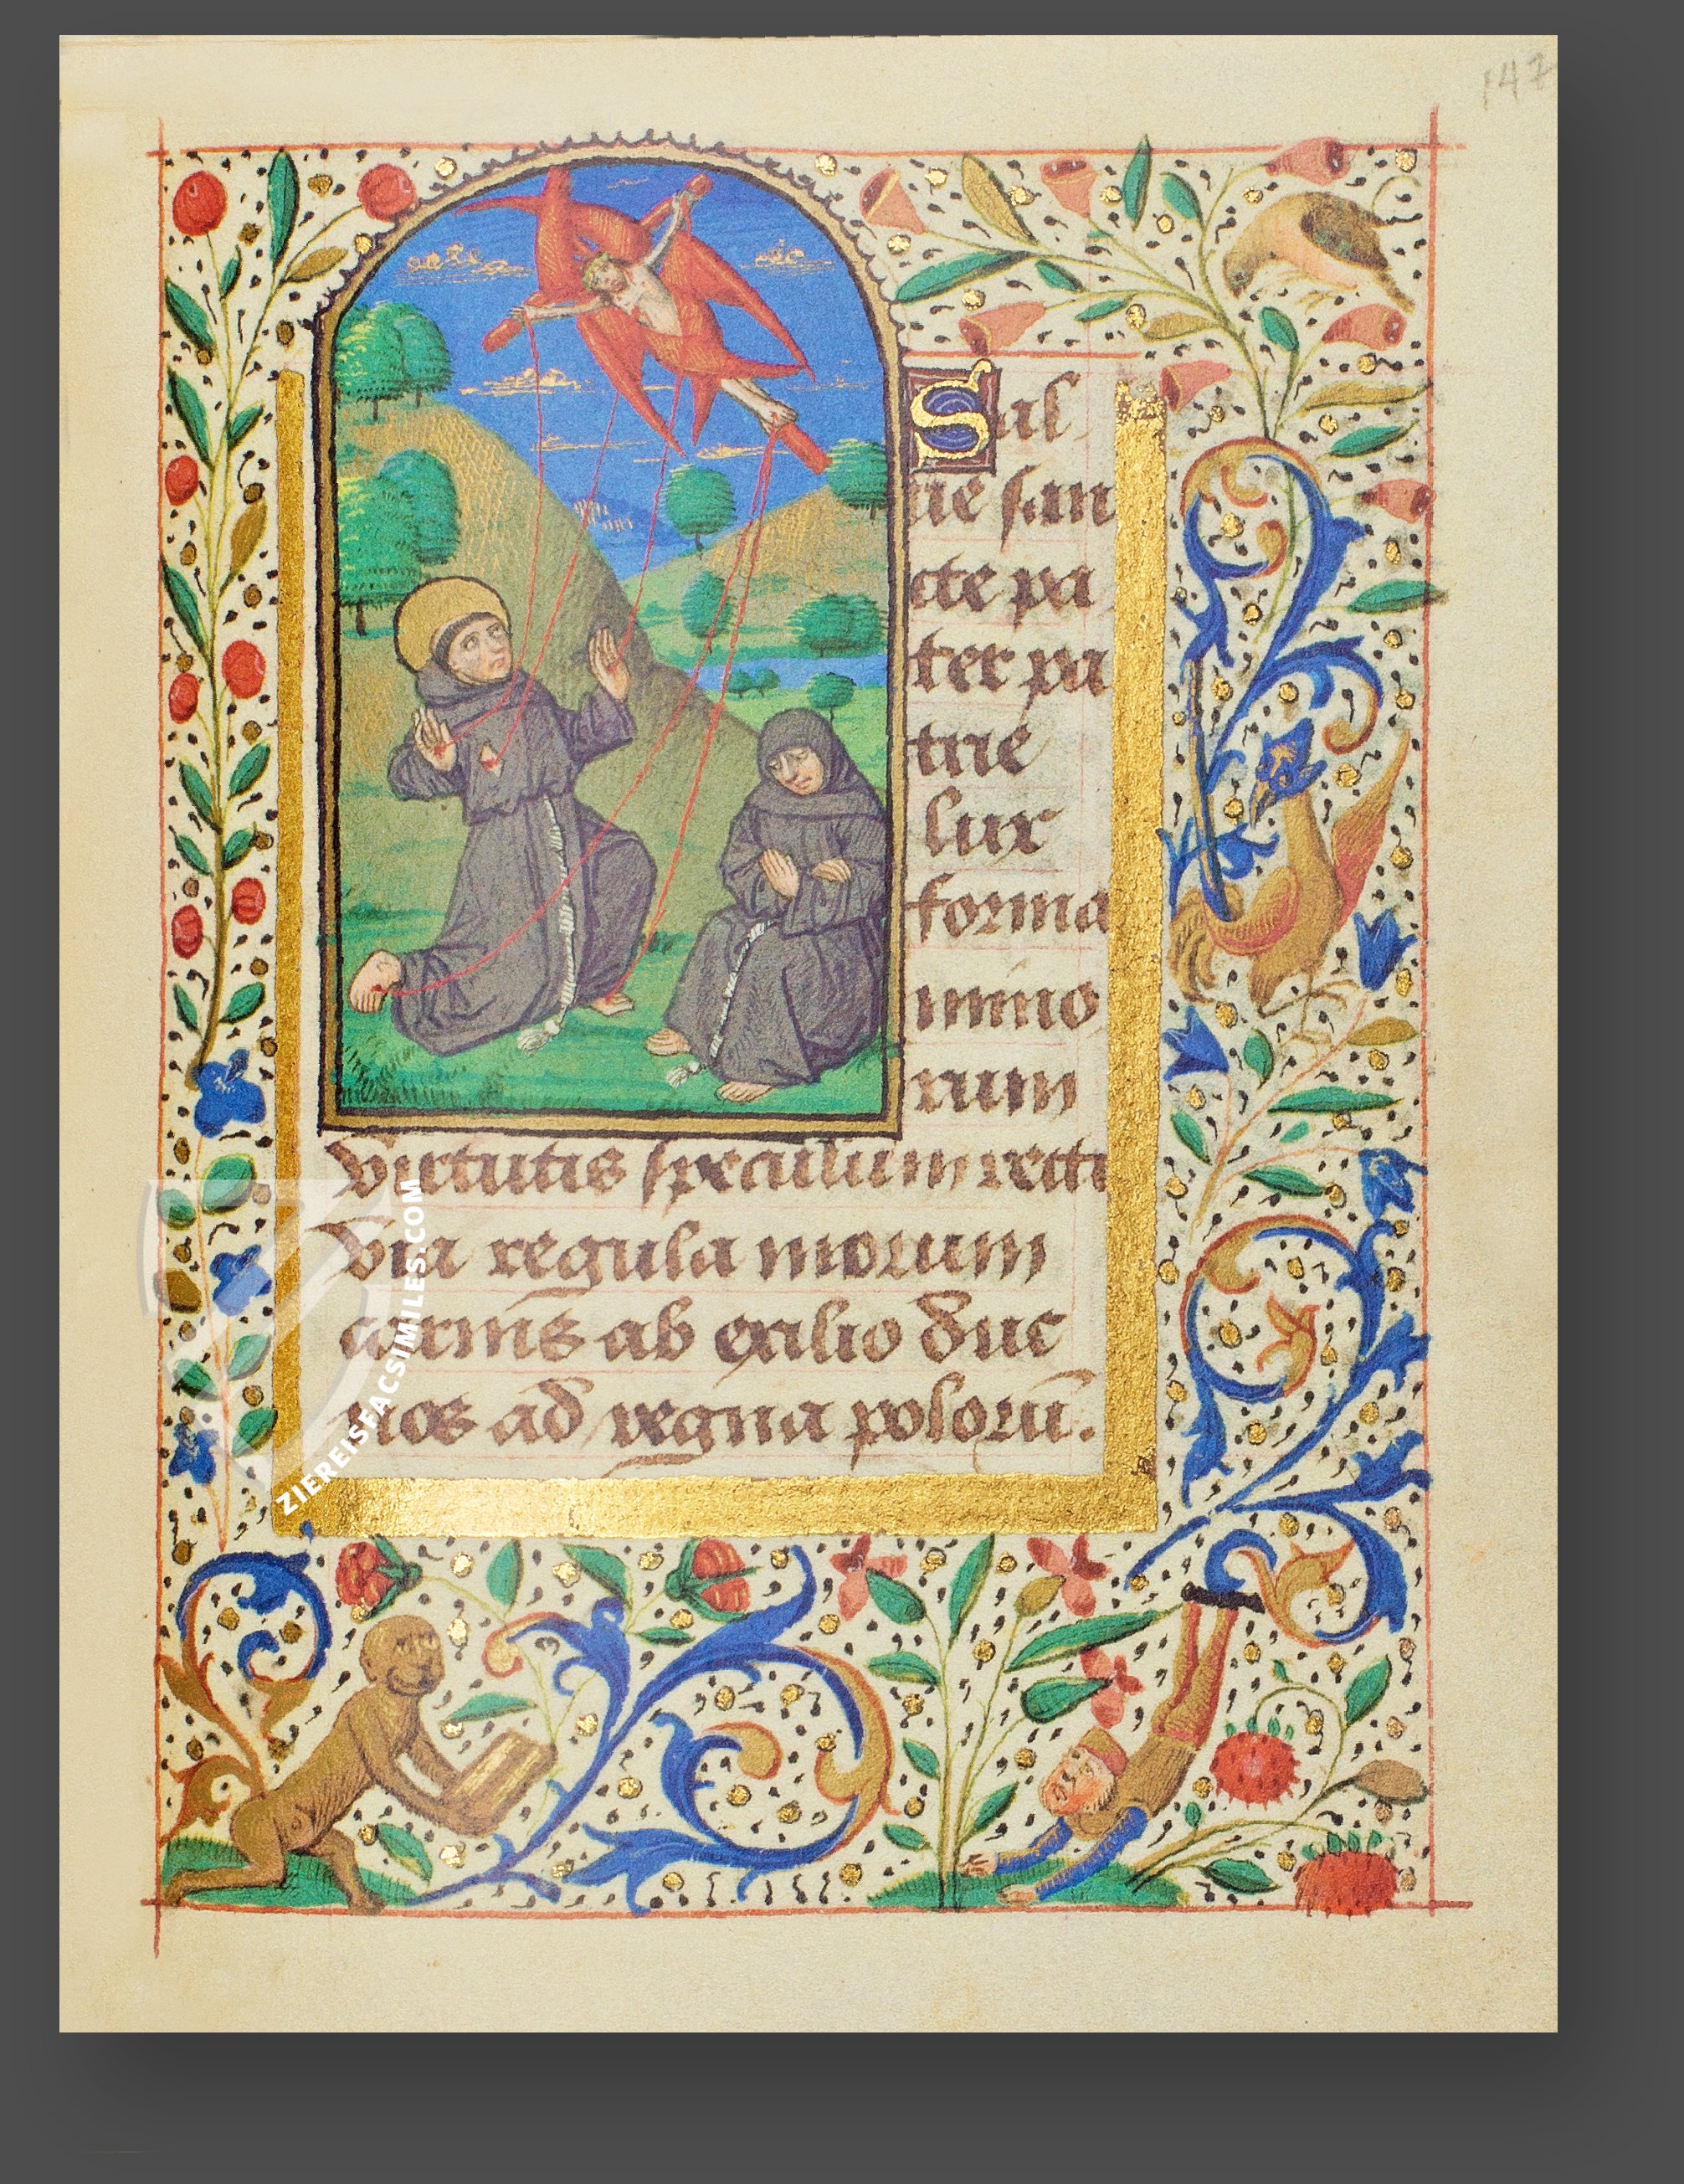 147
Sal
ue san
cte pa
ter pa
trie
lux
forma
mino
rum
virtutis speculum recti
via regula morum
carnis ab exilio duc
nos ad regna poloru̅.
ZIEREISFACSIMILES.COM